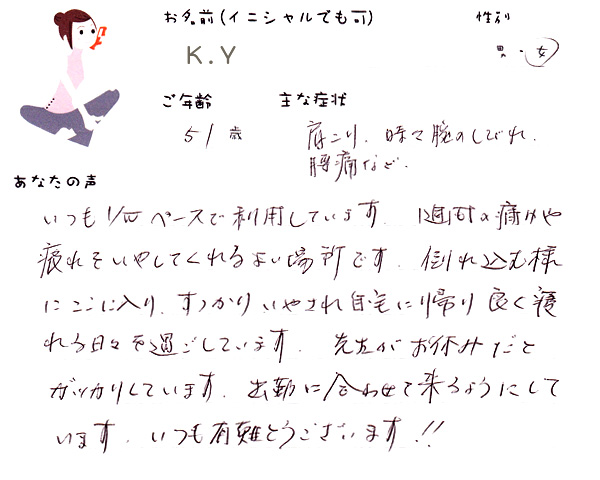 お名前(イニシャルでも可)
性別
K.Y
男・女
ご年齢
主な症状
51歳
肩こり、時々腕のしびれ、
腰痛など.
あなたの声
いつも1/W ペースで利用しています. 1週間の痛みや
疲れをいやしてくれるよい場所です. 倒れ込む様
にここに入り、すっかりいやされ自宅に帰り良く寝
れる日々を過ごしています. 先生がお休みだと
ガッカリしています. 出勤に合わせて来るようにして
います. いつも有難とうございます!!